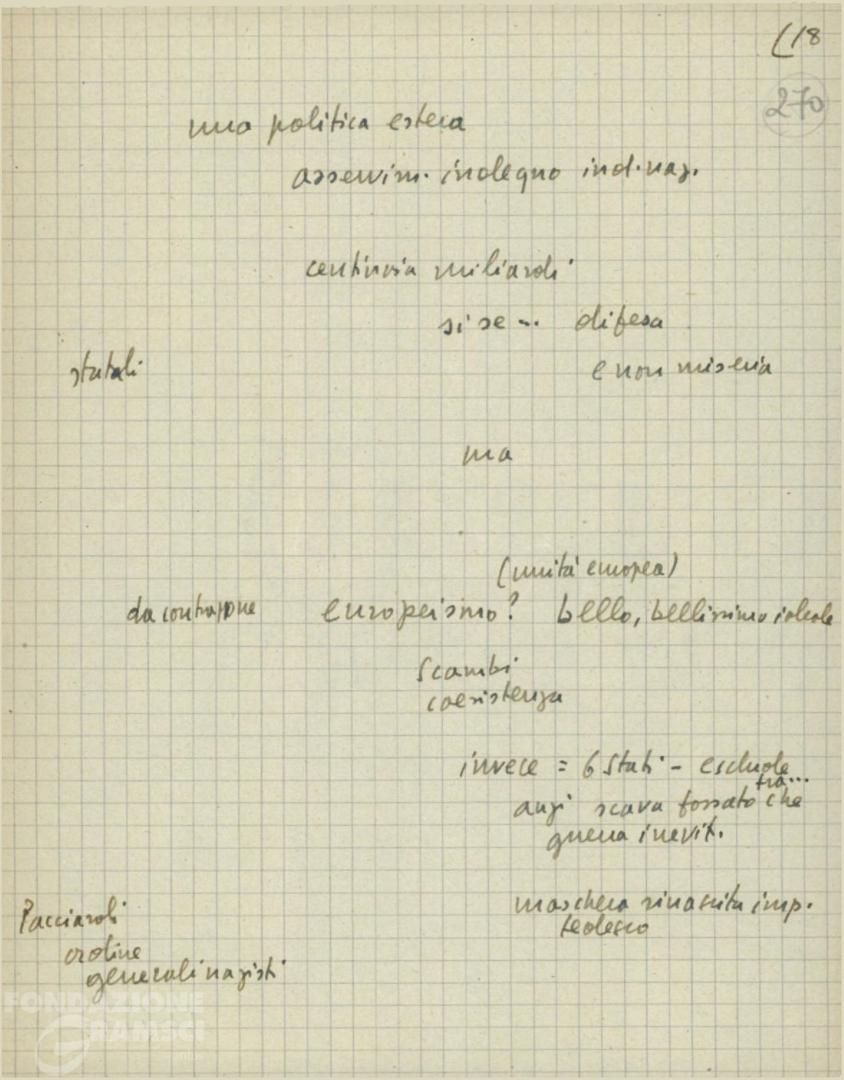 (18
270
una politica estera
asservim. indegno ind. naz.
centinaia miliardi
si se... difesa
statali
e non miseria
ma
(unità europea)
da contrapporre europeismo? bello, bellissimo ideale
scambi
coesistenza
invece = 6 Stati - esclude
tra...
anzi scava fossato che
guerra inevit.
Pacciardi
maschera rinascita imp.
tedesco
ordine
generali nazisti
FONDAZIONE
GRAMSCI